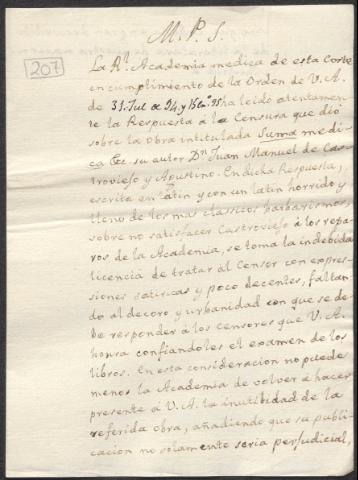 M. P. S.
207
La Rl. Academia medica de esta Corte
en cumplimiento de la Orden de V. A.
de 31. Jul. de 94 y 16 En. 95 ha leido atentamen-
te la Respuesta à la Censura que diò
sobre la Obra intitulada Suma medi-
ca &c. su autor Dn. Juan Manuel de Cas-
troviejo y Agustino. En dicha Respuesta,
escrita en Latin y con un latin horrido y
lleno de los mas classicos barbarismos,
sobre no satisfacer Castroviejo à los repa-
ros de la Academia, se toma la indebida
licencia de tratar al Censor con expre-
siones satiricas y poco decentes, faltan-
do al decoro y urbanidad con que se de-
be responder à los censores que V. A.
honra confiandoles el examen de los
libros. En esta consideracion no puede
menos la Academia de volver à hacer
presente à V. A. la inutilidad de la
referida obra, añadiendo que su publi-
cacion no solamente seria perjudicial,